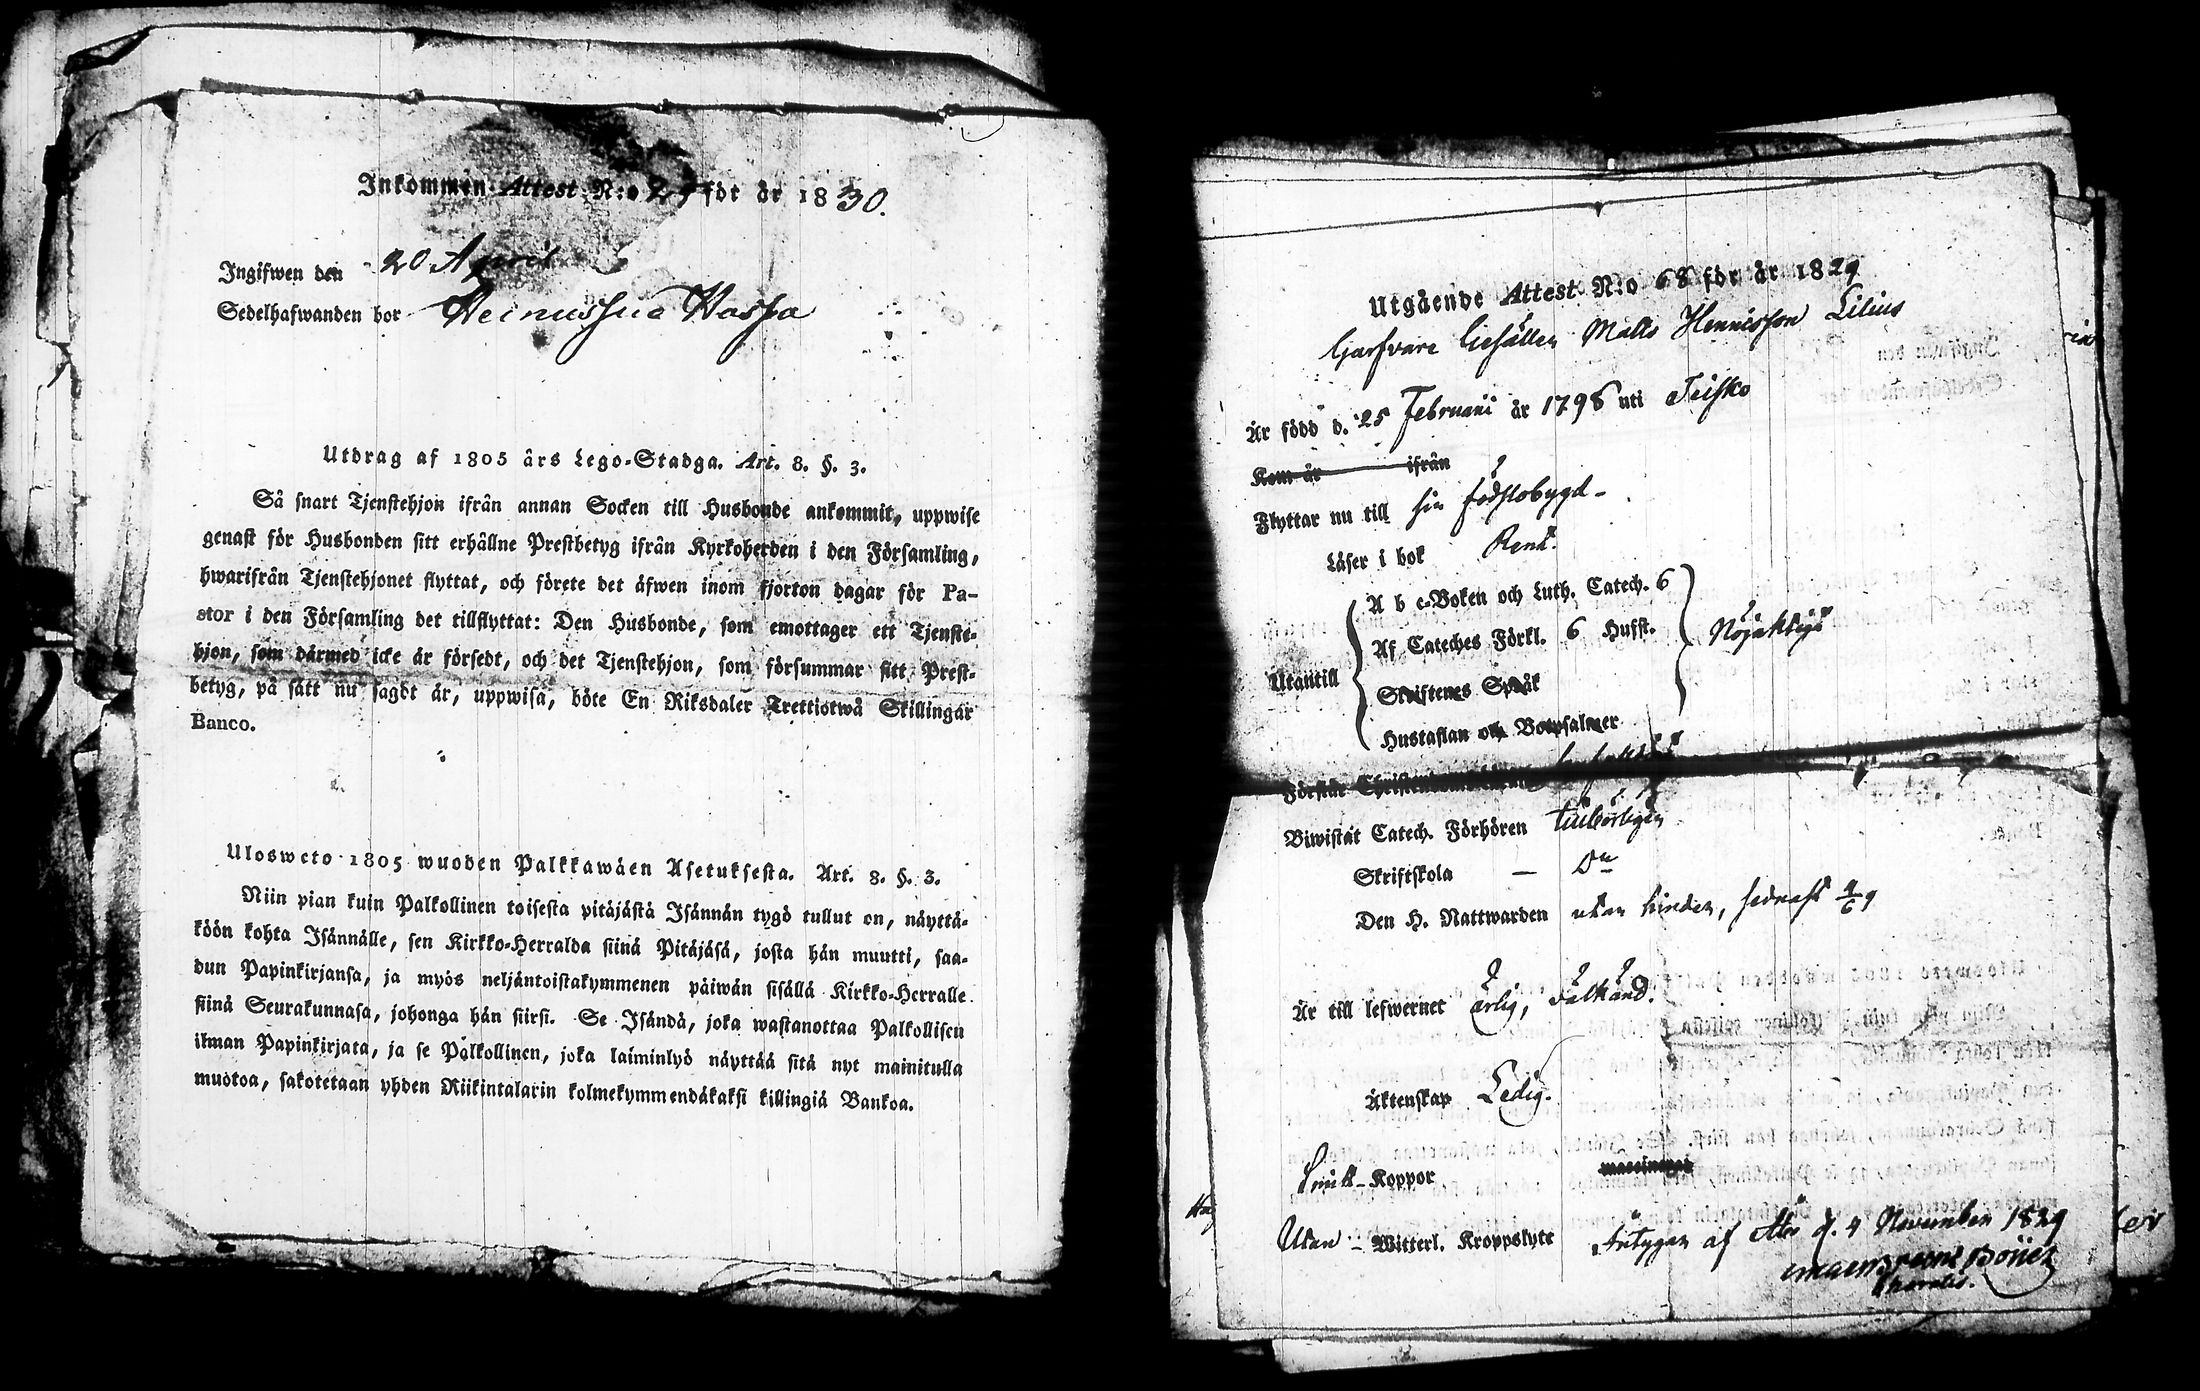 Inkommen Attest N:o 27 för år 1830.
Ingifwen den 20 April
Sedelhafwanden bor Heinussuo Waspa
Utdrag af 1805 års Lego-Stadga. Art. 8. §. 3.
Så snart Tjenstehjon ifrån annan Socken till Husbonde ankommit, uppwise
genast för Husbonden sitt erhållne Prestbetyg ifrån Kyrkoherden i den Församling,
hwarifrån Tjenstehjonet flyttat, och förete det äfwen inom fjorton dagar för Pa-
stor i den Församling det tillflyttat: Den Husbonde, som emottager ett Tjenste-
hjon, som därmed icke är försedt, och det Tjenstehjon, som försummar sitt Prest-
betyg, på sätt nu sagdt är, uppwisa, böte En Riksdaler Trettiotwå Skillingar
Banco.
Ulosweto 1805 wuoden Palkkawäen Asetuksesta. Art. 8. §. 3.
Niin pian kuin Palkollinen toisesta pitäjästä Isännän tygö tullut on, näyttä-
köön kohta Isännälle, sen Kirkko-Herralda siinä Pitäjäsä, josta hän muutti, saa-
dun Papinkirjansa, ja myös neljäntoistakymmenen päiwän sisällä Kirkko-Herralle
siinä Seurakunnasa, johonga hän siirsi. Se Isändä, joka wastanottaa Palkollisen
ilman Papinkirjata, ja se Palkollinen, joka laiminlyö näyttää sitä nyt mainitulla
muotoa, sakotetaan yhden Riikintalarin kolmekymmendäkaksi killingiä Bankoa.
Utgående Attest N:o 68 för år 1829
Garfvare Gesällen Matts Hennicsson Lilius
Är född d. 25 Februarii år 1798 uti Teisko
Kom år ifrån
Flyttar nu till sin födslobygd -
Läser i bok Rent.
A b c-Boken och Luth. Catech. 6
Af Cateches Förkl. 6 Hufst. Nöjaktligt
Utantill
Skriftenes Språk
Hustaflan och Botpsalmer
Förstår
Biwistat Catech. Förhören tillbörligen
Skriftskola — Do
Den H. Nattwarden utan hinder, sednast
Är till lefwernet ärlig, välkänd.
Äktenskap Ledig.
Haft Koppor
Utan - Witterl. Kroppslyte Intygar af Åbo d. 4 November 1829